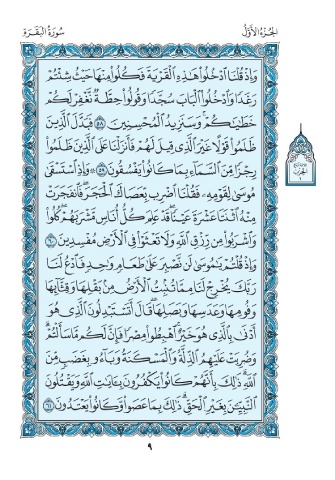 الجزء الأول
سورة البقرة
وَإِذْ قُلْنَا ٱدْخُلُوا۟ هَـٰذِهِ ٱلْقَرْيَةَ فَكُلُوا۟ مِنْهَا حَيْثُ شِئْتُمْ
رَغَدًا وَٱدْخُلُوا۟ ٱلْبَابَ سُجَّدًا وَقُولُوا۟ حِطَّةٌ نَّغْفِرْ لَكُمْ
خَطَـٰيَـٰكُمْ ۚ وَسَنَزِيدُ ٱلْمُحْسِنِينَ ٥٨ فَبَدَّلَ ٱلَّذِينَ
ظَلَمُوا۟ قَوْلًا غَيْرَ ٱلَّذِى قِيلَ لَهُمْ فَأَنزَلْنَا عَلَى ٱلَّذِينَ ظَلَمُوا۟
رِجْزًا مِّنَ ٱلسَّمَآءِ بِمَا كَانُوا۟ يَفْسُقُونَ ٥٩ ۞ وَإِذِ ٱسْتَسْقَىٰ
مُوسَىٰ لِقَوْمِهِۦ فَقُلْنَا ٱضْرِب بِّعَصَاكَ ٱلْحَجَرَ ۖ فَٱنفَجَرَتْ
مِنْهُ ٱثْنَتَا عَشْرَةَ عَيْنًا ۖ قَدْ عَلِمَ كُلُّ أُنَاسٍ مَّشْرَبَهُمْ ۖ كُلُوا۟
وَٱشْرَبُوا۟ مِن رِّزْقِ ٱللَّهِ وَلَا تَعْثَوْا۟ فِى ٱلْأَرْضِ مُفْسِدِينَ ٦٠
وَإِذْ قُلْتُمْ يَـٰمُوسَىٰ لَن نَّصْبِرَ عَلَىٰ طَعَامٍ وَٰحِدٍ فَٱدْعُ لَنَا
رَبَّكَ يُخْرِجْ لَنَا مِمَّا تُنۢبِتُ ٱلْأَرْضُ مِنۢ بَقْلِهَا وَقِثَّآئِهَا
وَفُومِهَا وَعَدَسِهَا وَبَصَلِهَا ۖ قَالَ أَتَسْتَبْدِلُونَ ٱلَّذِى هُوَ
أَدْنَىٰ بِٱلَّذِى هُوَ خَيْرٌ ۚ ٱهْبِطُوا۟ مِصْرًا فَإِنَّ لَكُم مَّا سَأَلْتُمْ ۗ
وَضُرِبَتْ عَلَيْهِمُ ٱلذِّلَّةُ وَٱلْمَسْكَنَةُ وَبَآءُو بِغَضَبٍ مِّنَ
ٱللَّهِ ۗ ذَٰلِكَ بِأَنَّهُمْ كَانُوا۟ يَكْفُرُونَ بِـَٔايَـٰتِ ٱللَّهِ وَيَقْتُلُونَ
ٱلنَّبِيِّـۧنَ بِغَيْرِ ٱلْحَقِّ ۗ ذَٰلِكَ بِمَا عَصَوا۟ وَّكَانُوا۟ يَعْتَدُونَ ٦١
٩